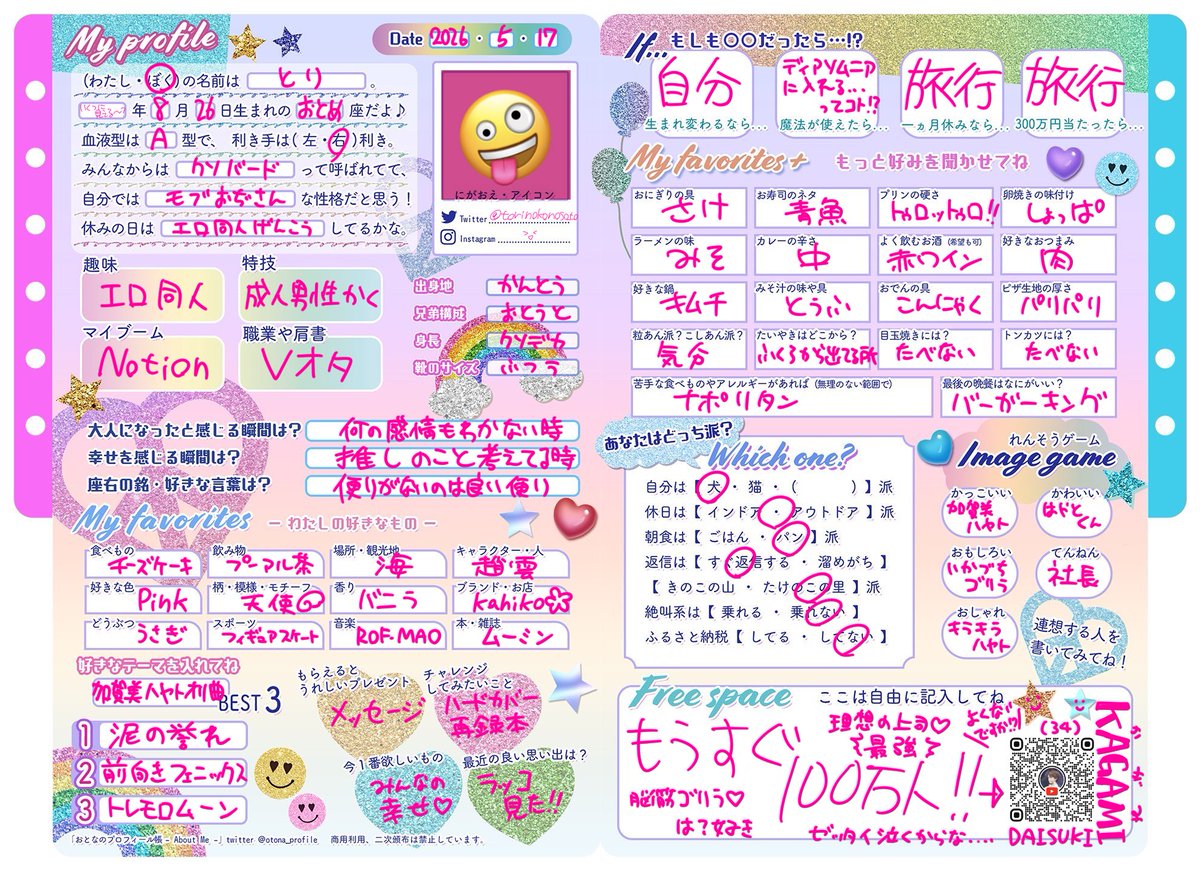 My profile
Date 2026・5・17
(わたし・ぼく)の名前は とり 。
年 8 月 26 日生まれの おとめ 座だよ♪
血液型は A 型で、 利き手は(左・右)利き。
みんなからは クソバード って呼ばれてて、
自分では モブおぢさん な性格だと思う!
休みの日は エロ同人げんこう してるかな。
にがおえ・アイコン
Twitter @torinokonosato
Instagram
趣味
エロ同人
特技
成人男性かく
マイブーム
Notion
職業や肩書
Vオタ
出身地 かんとう
兄弟構成 おとうと
身長 クソデカ
靴のサイズ ふつう
大人になったと感じる瞬間は? 何の感情もわかない時
幸せを感じる瞬間は? 推しのこと考えてる時
座右の銘・好きな言葉は? 便りがないのは良い便り
My favorites ー わたしの好きなもの ー
食べもの チーズケーキ
飲み物 プーアル茶
場所・観光地 海
キャラクター・人 趙雲
好きな色 Pink
柄・模様・モチーフ 天使
香り バニラ
ブランド・お店 kahiko
どうぶつ うさぎ
スポーツ フィギュアスケート
音楽 ROF-MAO
本・雑誌 ムーミン
好きなテーマを入れてね
加賀美ハヤトオリ曲 BEST 3
1 泥の誉れ
2 前向きフェニックス
3 トレモロムーン
もらえると
うれしいプレゼント
メッセージ
チャレンジ
してみたいこと
ハードカバー
再録本
今1番欲しいもの
みんなの
幸せ♡
最近の良い思い出は?
ラッコ
見た!!
「おとなのプロフィール帳 - About Me -」twitter @otona_profile 商用利用、二次頒布は禁止しています。
If... もしも〇〇だったら…!?
自分
生まれ変わるなら…
ディアソムニア
に入れる…
ってコト!?
魔法が使えたら…
旅行
一ヵ月休みなら…
旅行
300万円当たったら…
My favorites+ もっと好みを聞かせてね
おにぎりの具 さけ
お寿司のネタ 青魚
プリンの硬さ トゥロットゥロ!!
卵焼きの味付け しょっぱ
ラーメンの味 みそ
カレーの辛さ 中
よく飲むお酒(希望も可) 赤ワイン
好きなおつまみ 肉
好きな鍋 キムチ
みそ汁の味や具 とうふ
おでんの具 こんにゃく
ピザ生地の厚さ パリパリ
粒あん派?こしあん派? 気分
たいやきはどこから? ふくろから出てる所
目玉焼きには? たべない
トンカツには? たべない
苦手な食べものやアレルギーがあれば(無理のない範囲で) ナポリタン
最後の晩餐はなにがいい? バーガーキング
あなたはどっち派?
Which one?
自分は【 犬・ 猫 ・( )】派
休日は【 インドア ・ アウトドア 】派
朝食は【 ごはん ・ パン 】派
返信は【 すぐ返信する ・ 溜めがち 】
【 きのこの山 ・ たけのこの里 】派
絶叫系は【 乗れる ・ 乗れない 】
ふるさと納税【 してる ・ してない 】
れんそうゲーム
Image game
かっこいい
加賀美
ハヤト
かわいい
はやと
くん
おもしろい
いかづち
ゴリラ
てんねん
社長
おしゃれ
キラキラ
ハヤト
連想する人を
書いてみてね!
Free space ここは自由に記入してね
もうすぐ
100万人!!
理想の上司♡
最強
よくない
ですか!?
(34)
脳筋ゴリラ♡
は?好き
ゼッタイ泣くからな....
KAGAMI
DAISUKI